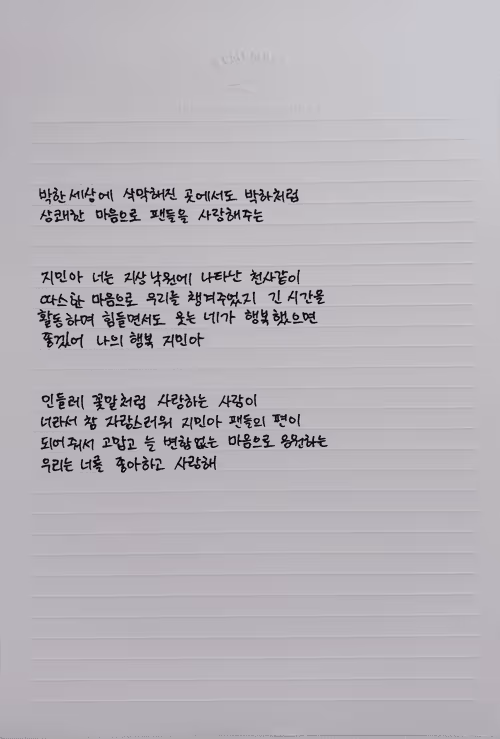 박한 세상에 삭막해진 곳에서도 박하처럼
상쾌한 마음으로 팬들을 사랑해주는
지민아 너는 지상낙원에 나타난 천사같이
따스한 마음으로 우리를 챙겨주었지 긴 시간을
활동하며 힘들면서도 웃는 네가 행복했으면
좋겠어 나의 행복 지민아
민들레 꽃말처럼 사랑하는 사람이
너라서 참 자랑스러워 지민아 팬들의 편이
되어줘서 고맙고 늘 변함없는 마음으로 응원하는
우리는 너를 좋아하고 사랑해